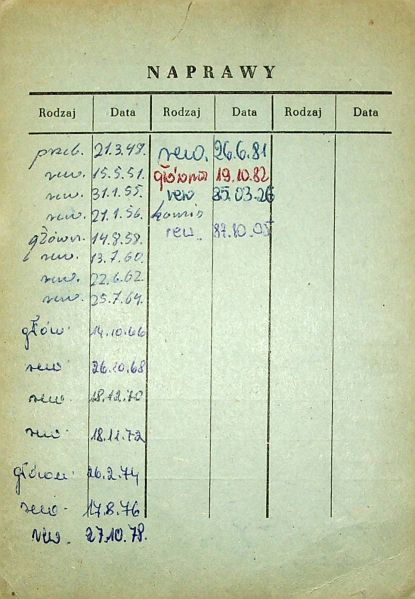 NAPRAWY
Rodzaj Data Rodzaj Data Rodzaj Data
przeb. 21.3.49.
rew. 15.5.51.
rew. 31.1.55.
rew. 21.1.56.
główn. 14.8.58.
rew. 13.7.60.
rew. 22.6.62.
rew. 25.7.64.
głów. 14.10.66
rew. 26.10.68
rew. 18.12.70
rew. 18.11.72
główn. 26.2.74
rew. 17.8.76
rew. 27.10.78.
rew. 26.6.81
główna 19.10.82
rew 85.03.26
rew. 87.10.05